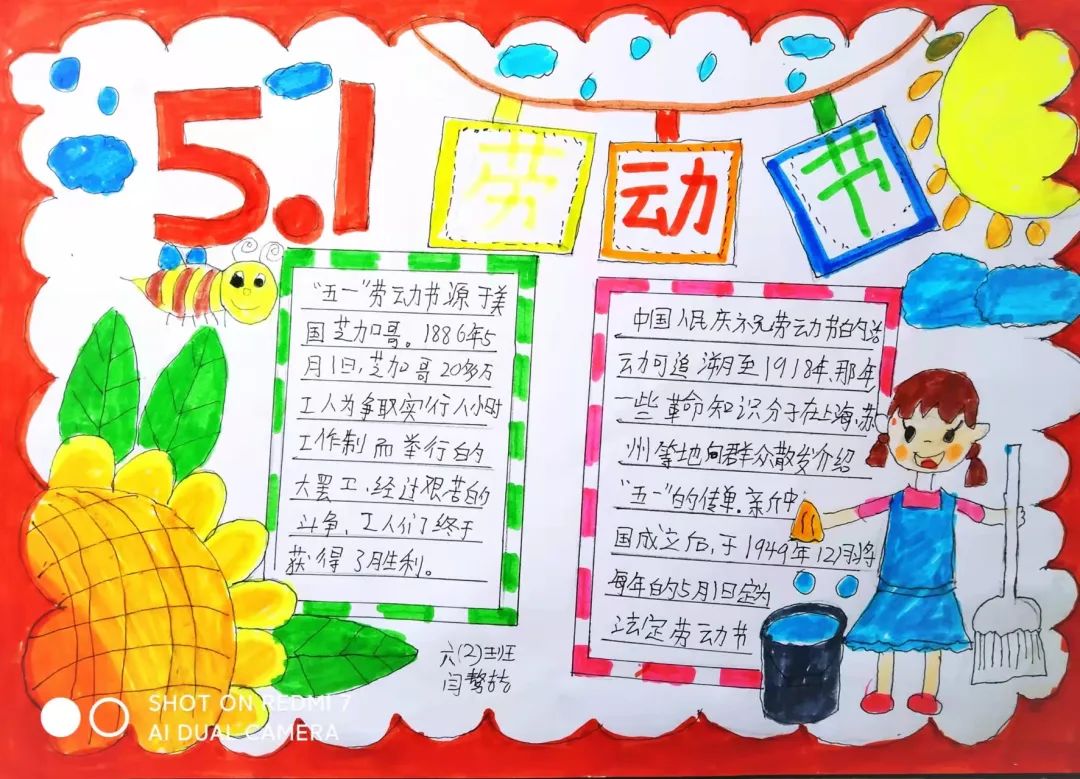 5.1
劳动节
“五一”劳动节源于美
国芝加哥。1886年5
月1日,芝加哥20多万
工人为争取实行八小时
工作制而举行的
大罢工,经过艰苦的
斗争,工人们终于
获得了胜利。
中国人民庆祝劳动节的活
动可追溯至1918年.那年
一些革命知识分子在上海、苏
州等地向群众散发介绍
“五一”的传单.新中
国成立后,于1949年12月将
每年的5月1日定为
法定劳动节
六(2)班
闫
SHOT ON REDMI 7
AI DUAL CAMERA